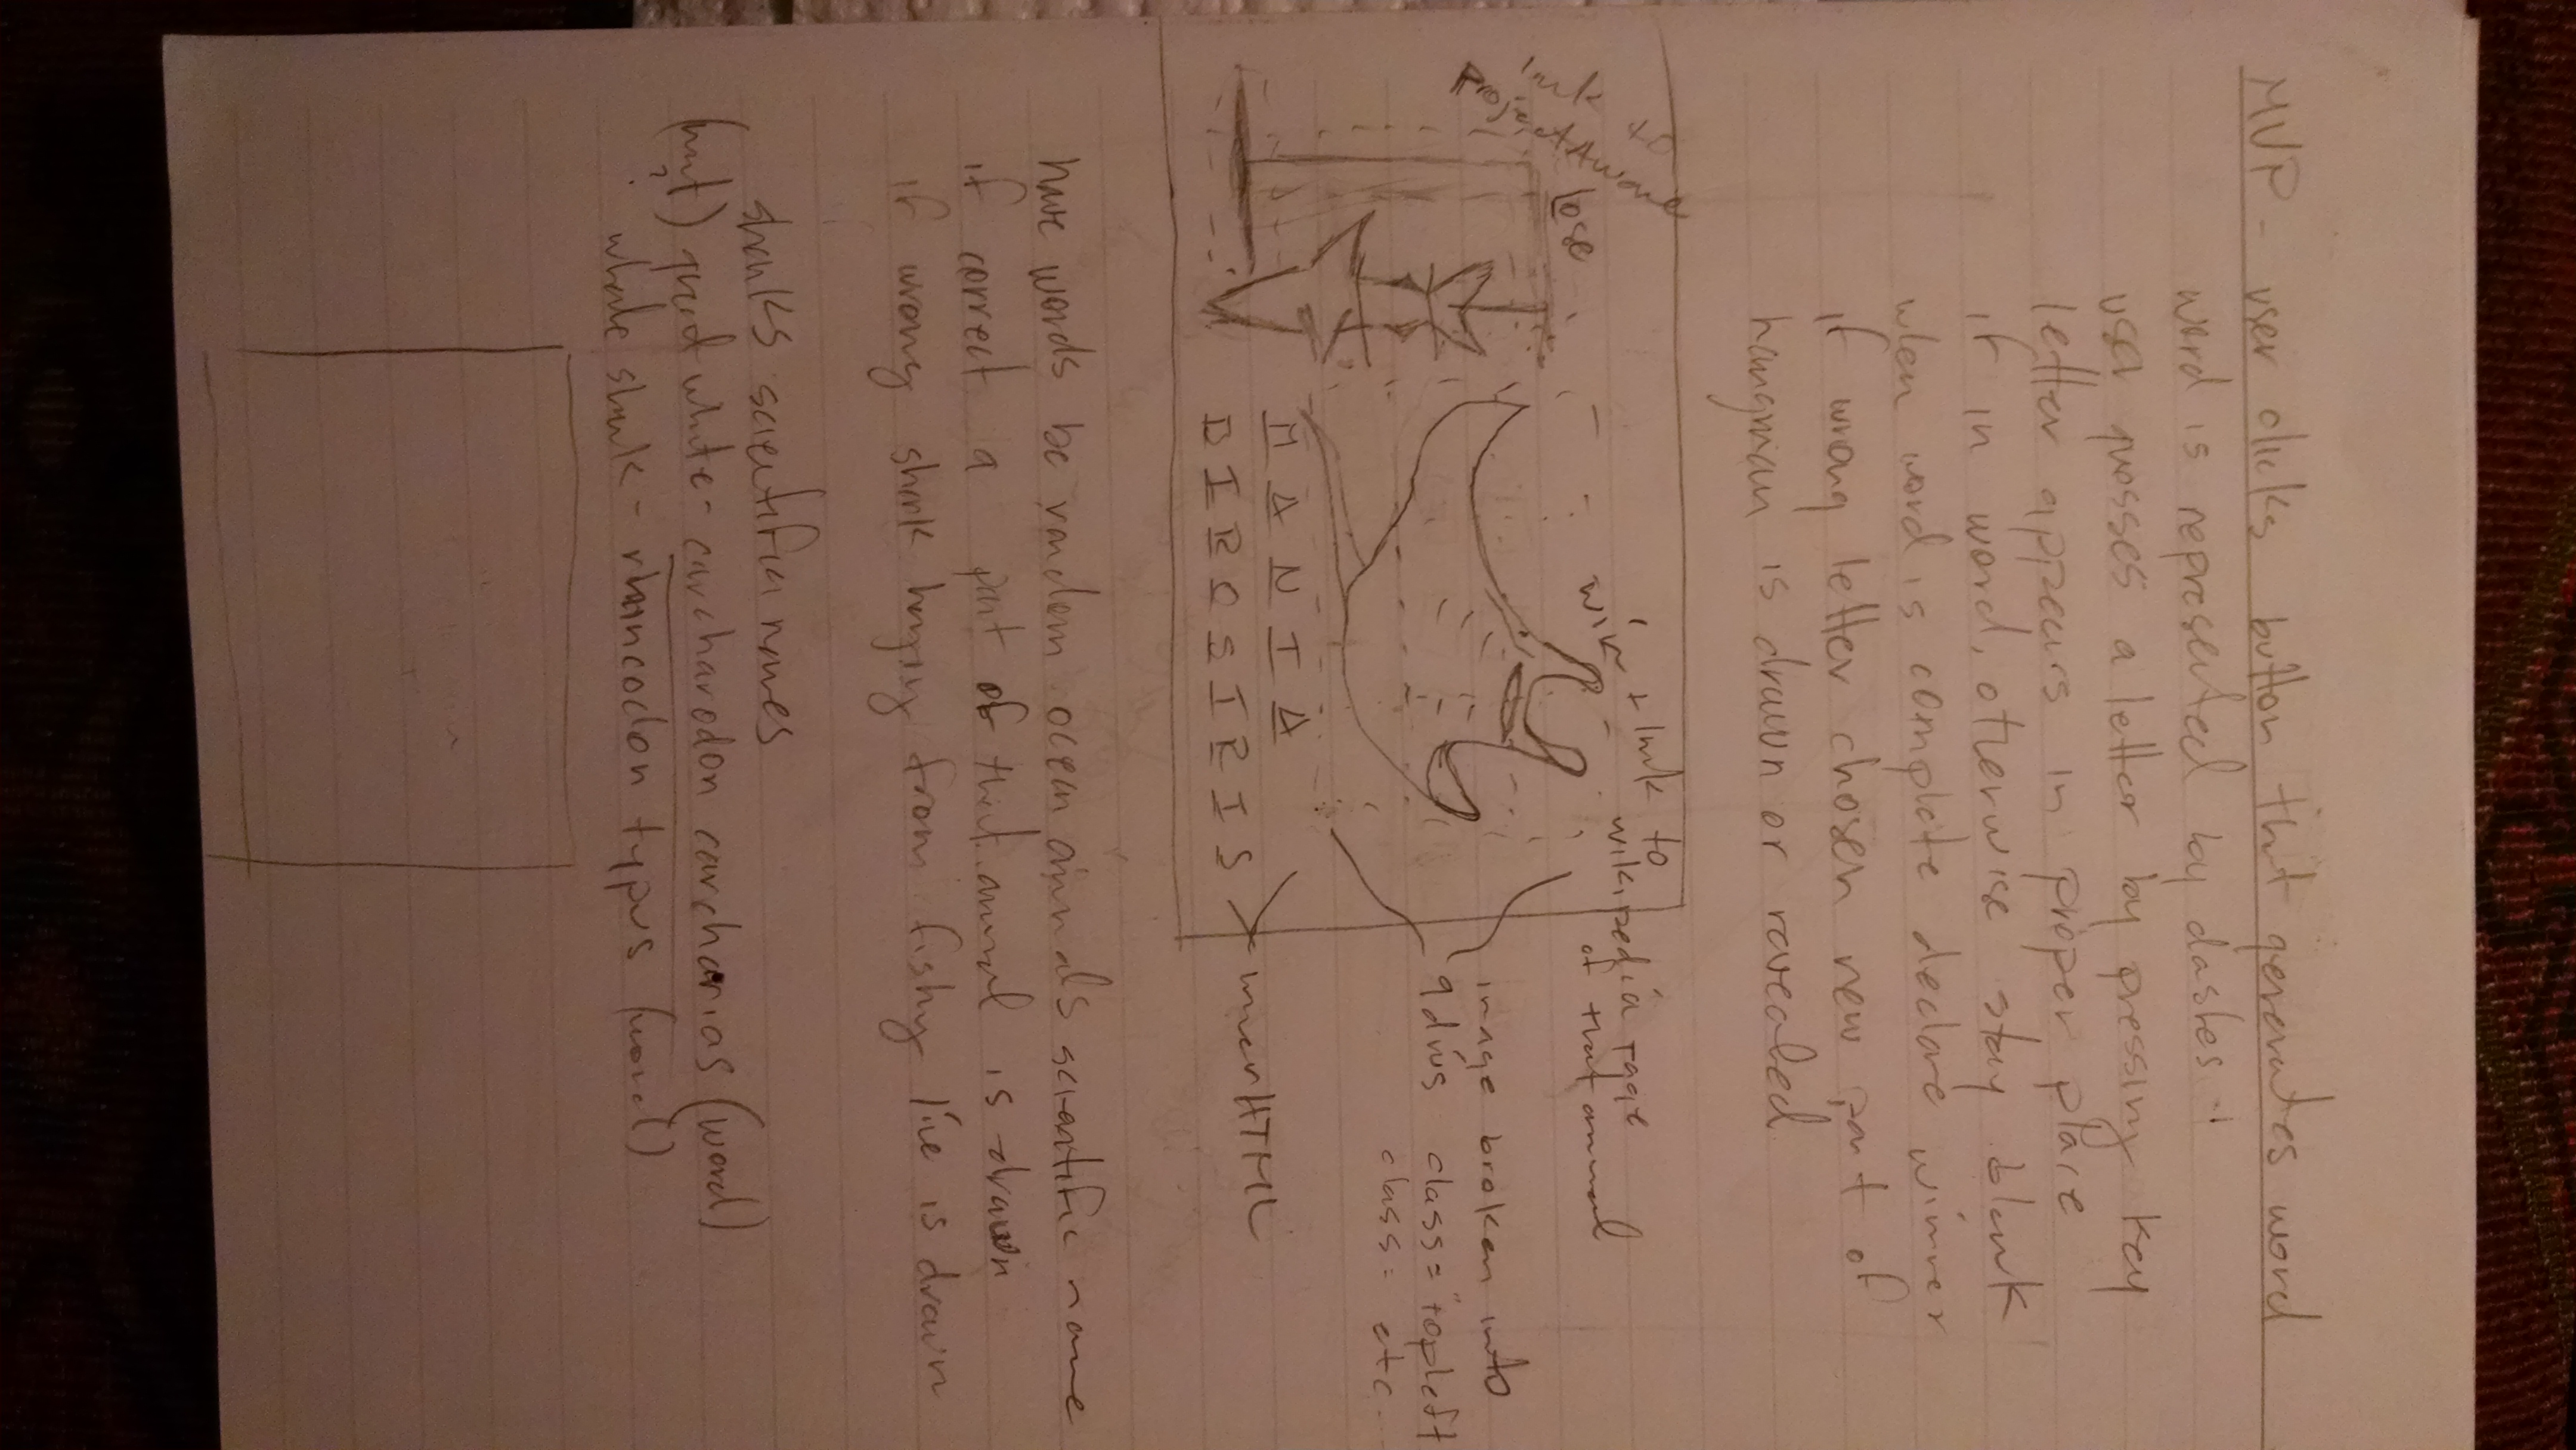 MVP - user clicks button that generates word
word is represented by dashes
user guesses a letter by pressing key
letter appears in proper place
if in word, otherwise stay blank
when word is complete declare winner
if wrong letter chosen new part of
hangman is drawn or revealed
link to
lose
win + link to
wikipedia page
of that animal
image broken into
9 divs class = topleft
class = etc.
M A N T A
B I R O S I R I S
innerHTML
have words be random ocean animals scientific name
if correct a part of that animal is drawn
if wrong shark hanging from fishing line is drawn
sharks scientific names
(hint) great white - carcharodon carcharias (word)
?
whale shark - rhincodon typus (word)